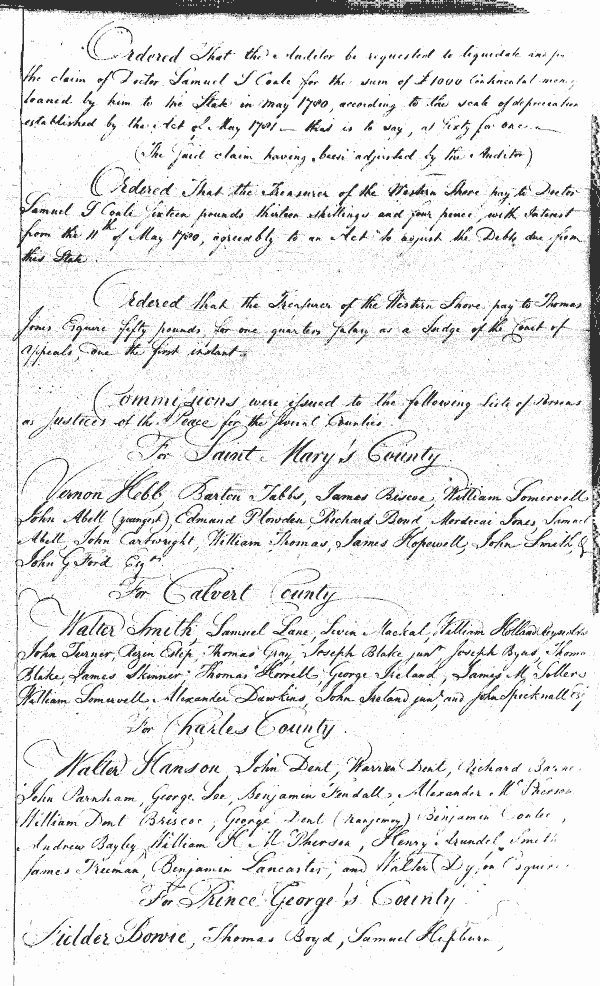 Ordered That the Auditor be requested to liquidate and
the claim of Doctor Samuel S Coale for the sum of £1000 Continental money
loaned by him to the State in May 1780, according to the scale of depreciation
established by the Act of May 1781 — that is to say, at sixty for one
(The said claim having been adjusted by the Auditor)
Ordered That the Treasurer of the Western Shore pay to Doctor
Samuel S Coale sixteen pounds thirteen shillings and four pence, with Interest
from the 11th of May 1780, agreeably to an Act to adjust the Debts due from
this State.
Ordered that the Treasurer of the Western Shore pay to Thomas
Jones Esquire fifty pounds for one quarters salary as a Judge of the Court of
Appeals, due the first instant.
Commissions were issued to the following lists of Persons
as Justices of the Peace for the several Counties.
For Saint Mary's County
Vernon Hebb, Barton Tabbs, James Biscoe, William Somervell
John Abell (youngest), Edmund Plowden, Richard Bond, Mordecai Jones, Samuel
Abell, John Cartwright, William Thomas, James Hopewell, John Smith, &
John G Ford Esqrs
For Calvert County
Walter Smith, Samuel Lane, Levin Mackal, William Holland,
John Turner, Rezen Estep, Thomas Gray, Joseph Blake junr Joseph Thomas
Blake, James Skinner Thomas Horrell, George Ireland, James
William Somervell Alexander Dawkins, John Ireland junr, and John Specknall
For Charles County
Walter Hanson, John Dent, Warren Dent, Richard
John Parnham, George Lee, Benjamin Fendall, Alexander McPherson
William Dent Briscoe, George Dent (Nanjemoy) Benjamin
Andrew Bayley, William H McPherson, Henry Arundel Smith
James Freeman, Benjamin Lancaster, and Walter Esquires
For Prince George's County
Fielder Bowie, Thomas Boyd, Samuel Hepburn,